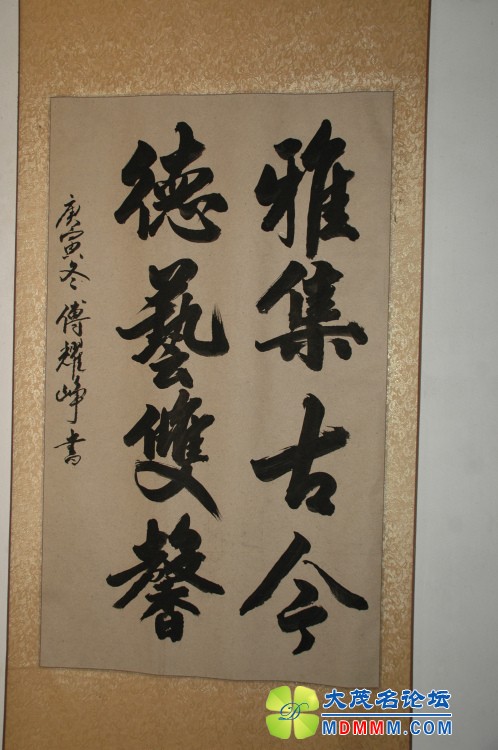 雅集古今
德藝雙馨
庚寅冬傅耀崢書
大茂名论坛
MDMMM.COM